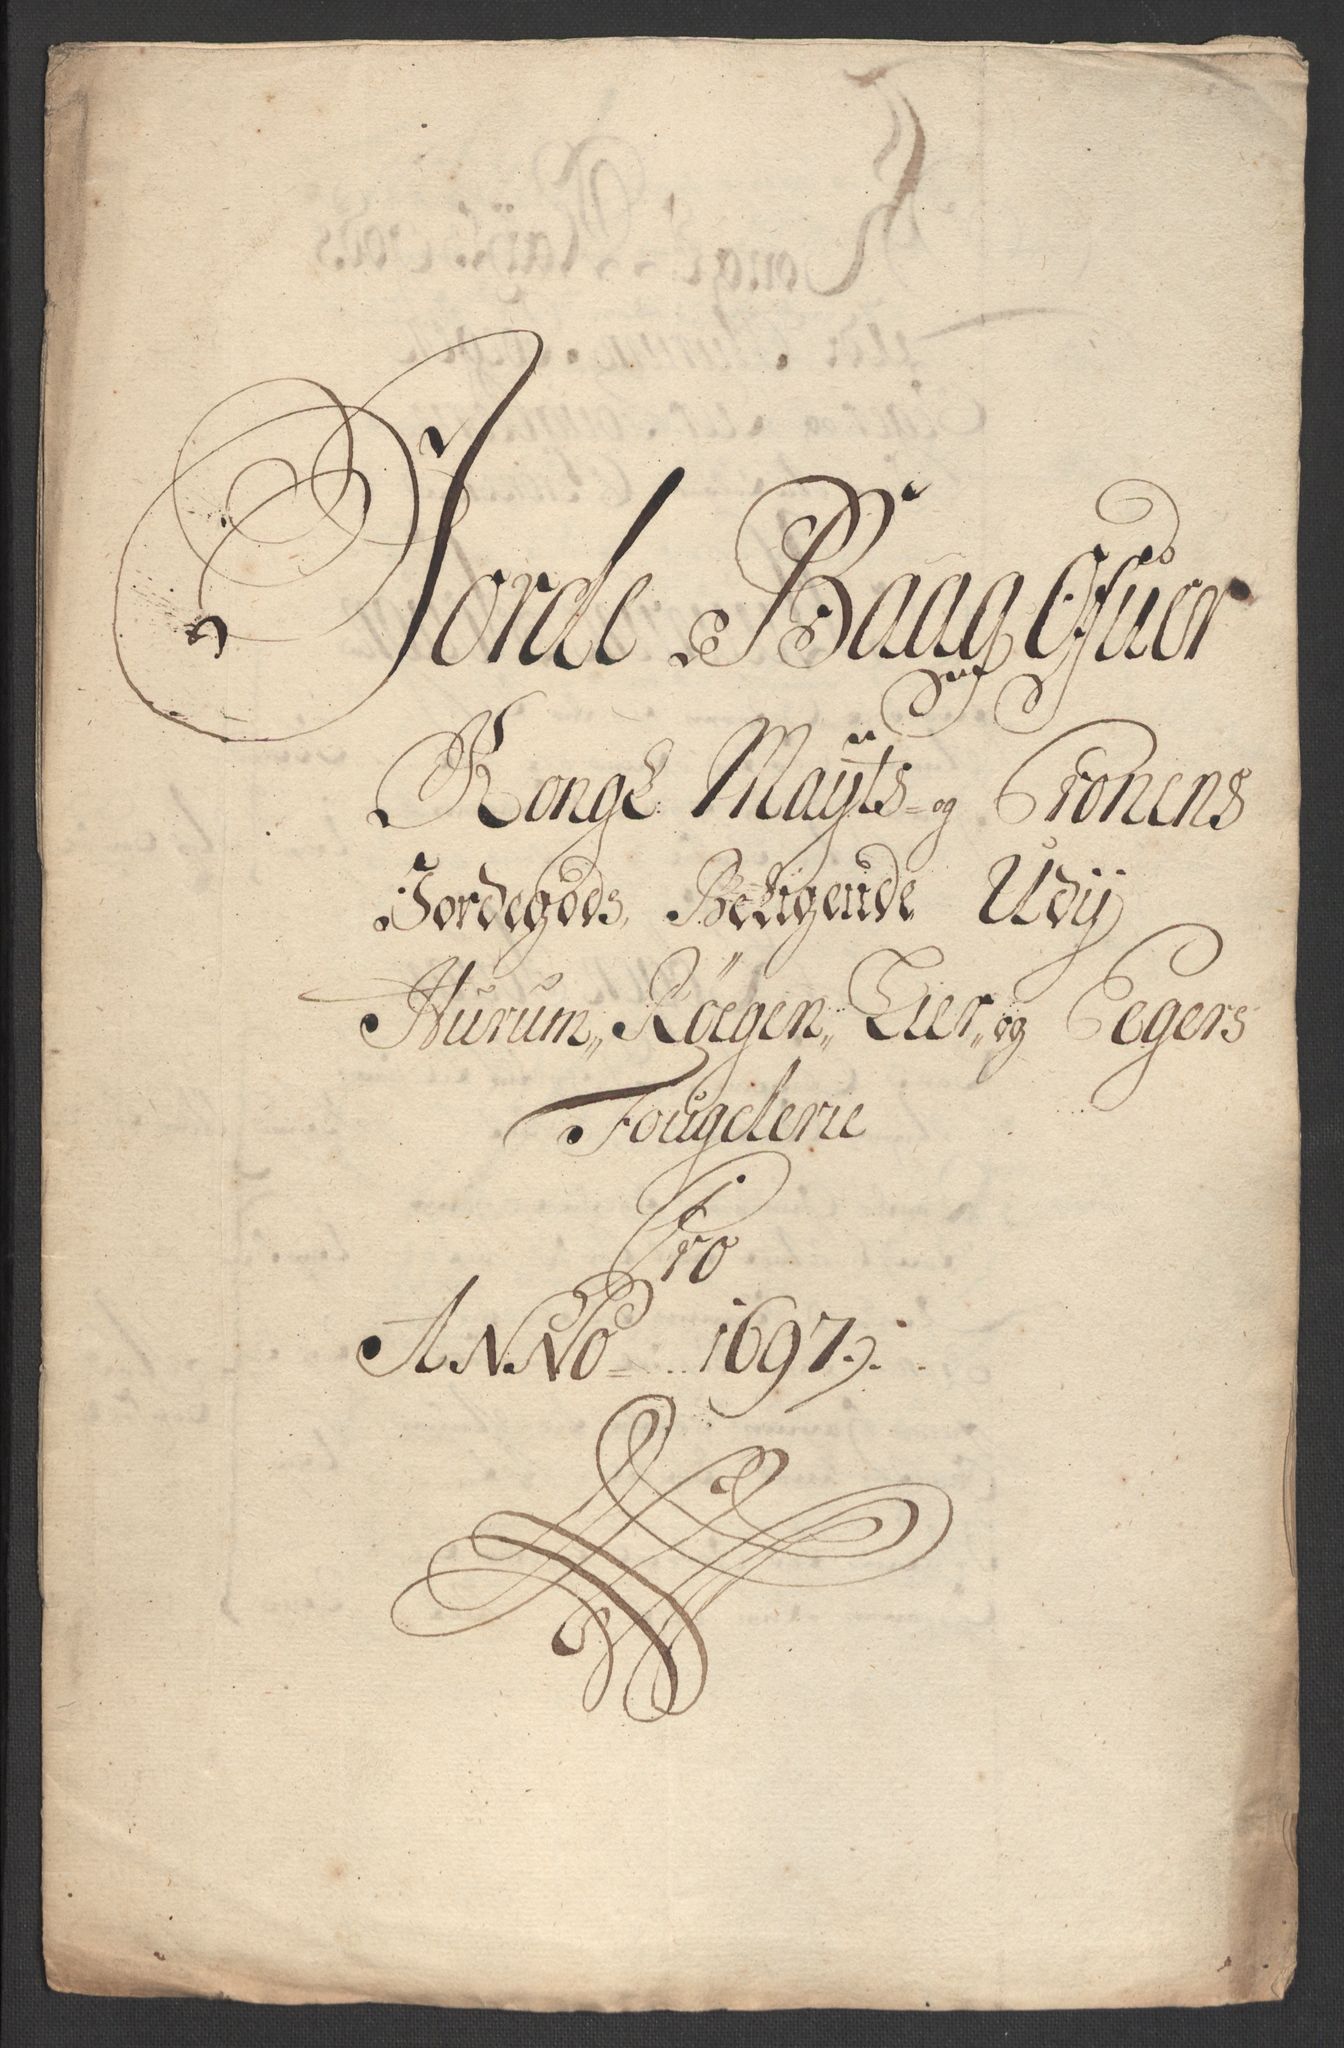 Jorde Baag Ofuer
Kongl: Maÿts= og Cronens
Jordegods, Beligende Udij
Hurum,, Röegen,, Lier,, og Eegers
Fougderie
Pro
ANNO 1697.